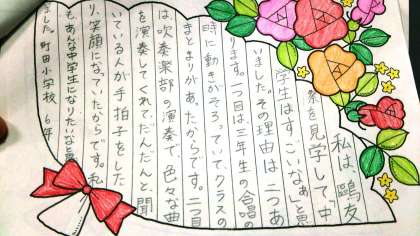 私は、鷗友
祭を見学して「中
学生はすごいなぁ」と思
いました。その理由は二つあ
ります。一つ目は三年生の合唱の
時に動きがそろっていて、クラスの
まとまりがあったからです。二つ目
は、吹奏楽部の演奏で、色々な曲
を演奏してくれて、だんだんと、聞
いている人が手拍子をした
り、笑顔になっていたからです。私
も、あんな中学生になりたいなと思
いました。町田小学校 6年